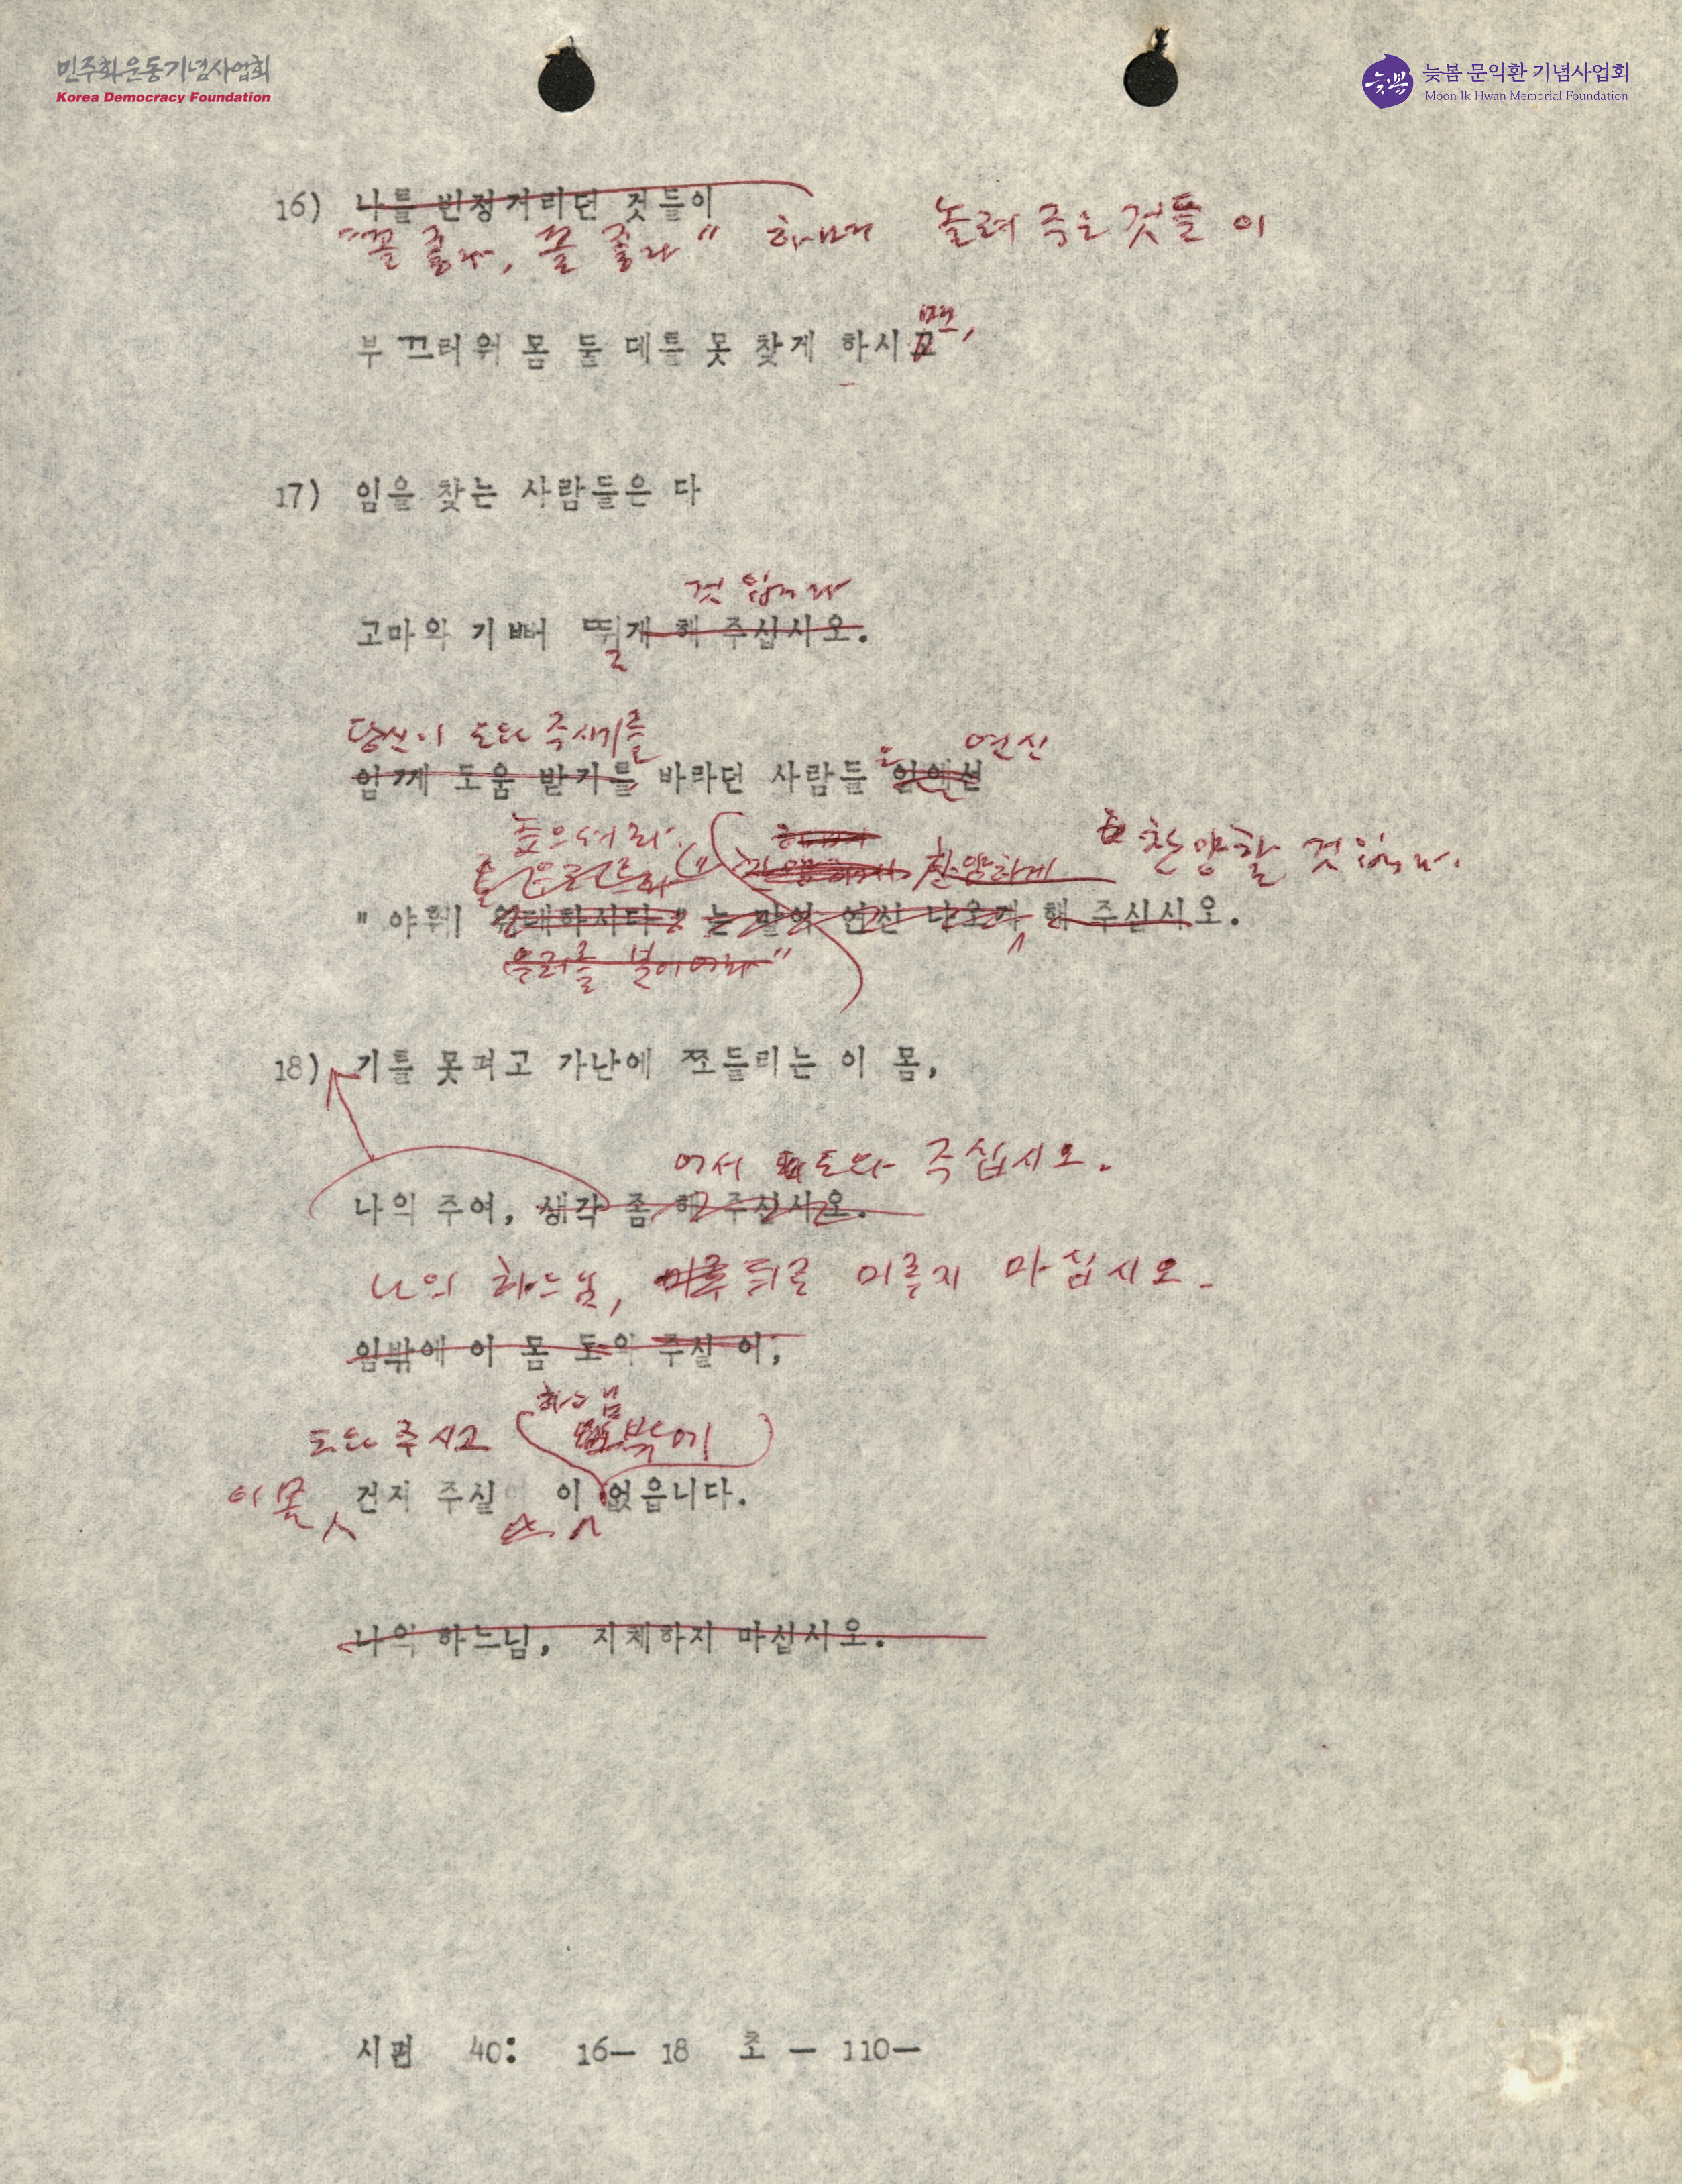 민주화운동기념사업회
Korea Democracy Foundation
늦봄
늦봄 문익환 기념사업회
Moon Ik Hwan Memorial Foundation
16) 나를 빈정거리던 것들이
"꼴 좋다, 꼴 좋다" 하며 놀려 주는 것들이
며,
부끄러워 몸 둘 데를 못 찾게 하시고
17) 임을 찾는 사람들은 다
것입니다
고마와 기뻐 뛸게 해 주십시오.
ㄹ
당신이 도와 주시기를
은 연신
임께 도움 받기를 바라던 사람들 입에선
높으셔라. 찬양하게 찬양할 것입니다.
"야훼 위대하시다" 는 말이 연신 나오게 해 주십시오.
우러름 받이어라"
18) 기를 못펴고 가난에 쪼들리는 이 몸,
어서 도와 주십시오.
나의 주여, 생각 좀 해 주십시오.
나의 하느님, 뒤로 미루지 마십시오.
임밖에 이 몸 도와 주실 이,
하느님
도와 주시고 밖에
이 몸 건져 주실 이 없읍니다.
나의 하느님, 지체하지 마십시오.
시편 40: 16— 18 초 — 110—